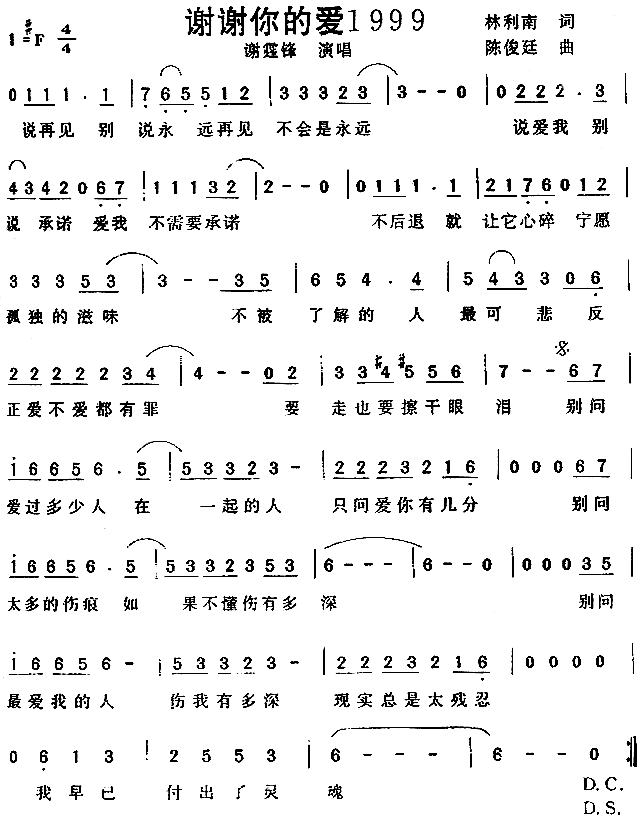 谢谢你的爱1999
1=#F 4/4
林利南 词
谢霆锋 演唱
陈俊廷 曲
0111.1 | 765512 | 333323 | 3--0 | 0222.3
说再见 别 说永 远再见 不会是永远 说爱我 别
4342067 | 111132 | 2--0 | 0111.1 | 2176012
说 承诺 爱我 不需要承诺 不后退 就 让它心碎 宁愿
3 3 3 5 3 | 3 - 35 | 6 5 4 . 4 | 5 43 3 0 6
孤独的滋味 不被 了解的 人 最可 悲反
2 2 2 2 2 3 4 | 4 - - 02 | 3 3 #4 #5 5 6 | 7 - - 67
正爱不爱都有罪 要 走也要擦干眼 泪 别问
i6656.5 | 533323- | 2223216 | 00067
爱过多少人 在 一起的人 只问爱你有几分 别问
i6656.5 | 5332353 | 6--- | 6--0 | 00035
太多的伤痕 如 果不懂伤有多 深 别问
i6656- | 533323- | 2223216 | 0000
最爱我的人 伤我有多深 现实总是太残忍
0 6 1 3 | 2 5 5 3 | 6 - - - | 6 - - 0
我早已 付出了灵 魂
D.C.
D.S.